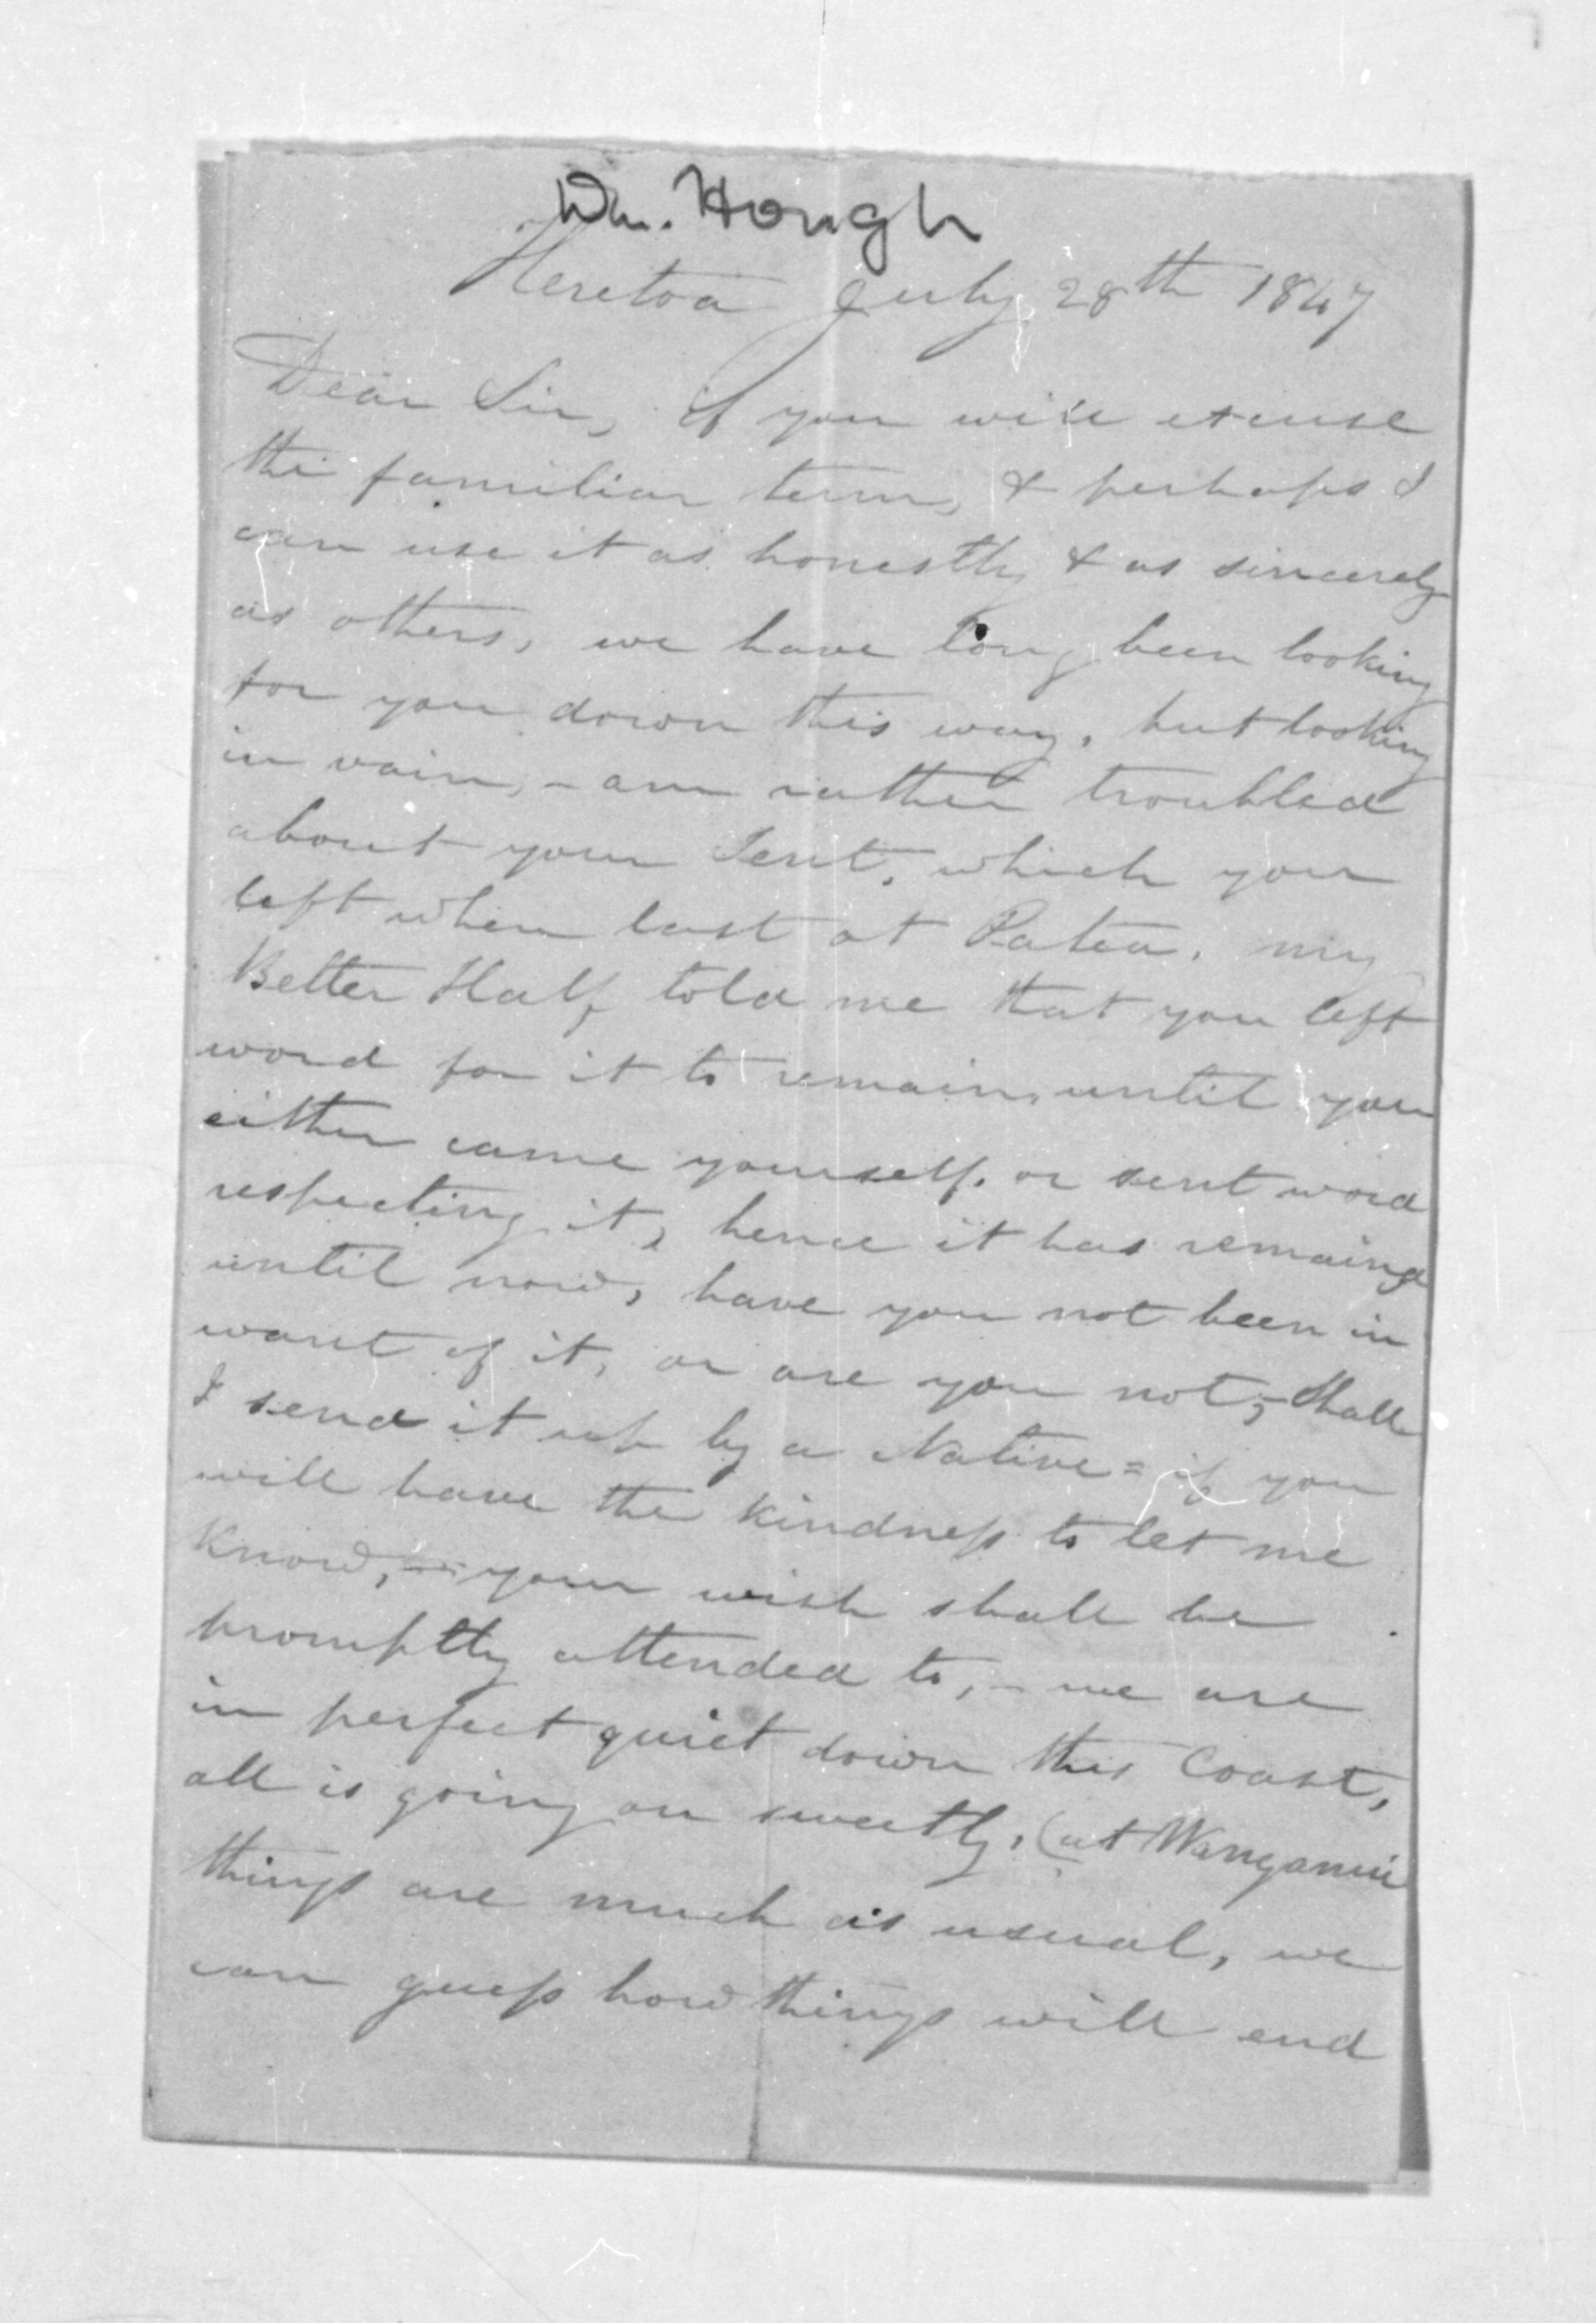 Wm. Hough
Heretoa July 28th 1847
Dear Sir, if you will excuse
the familiar term, & perhaps I
can use it as honestly & as sincerely
as others, we have long been looking
for you down this way, but looking
in vain, - am rather troubled
about your Tent, which you
left when last at Patea. my
Better Half told me that you left
word for it to remain, until you
either came yourself, or sent word
respecting it, hence it has remaind
until now, have you not been in
want of it, or are you not, - Shall
I send it up by a Native = if you
will have the kindness to let me
know, - your wish shall be
promptly attended to, - we are
in perfect quiet down this Coast,
all is going on sweetly, (at Wanganui
things are much as usual, we
can guess how things will end